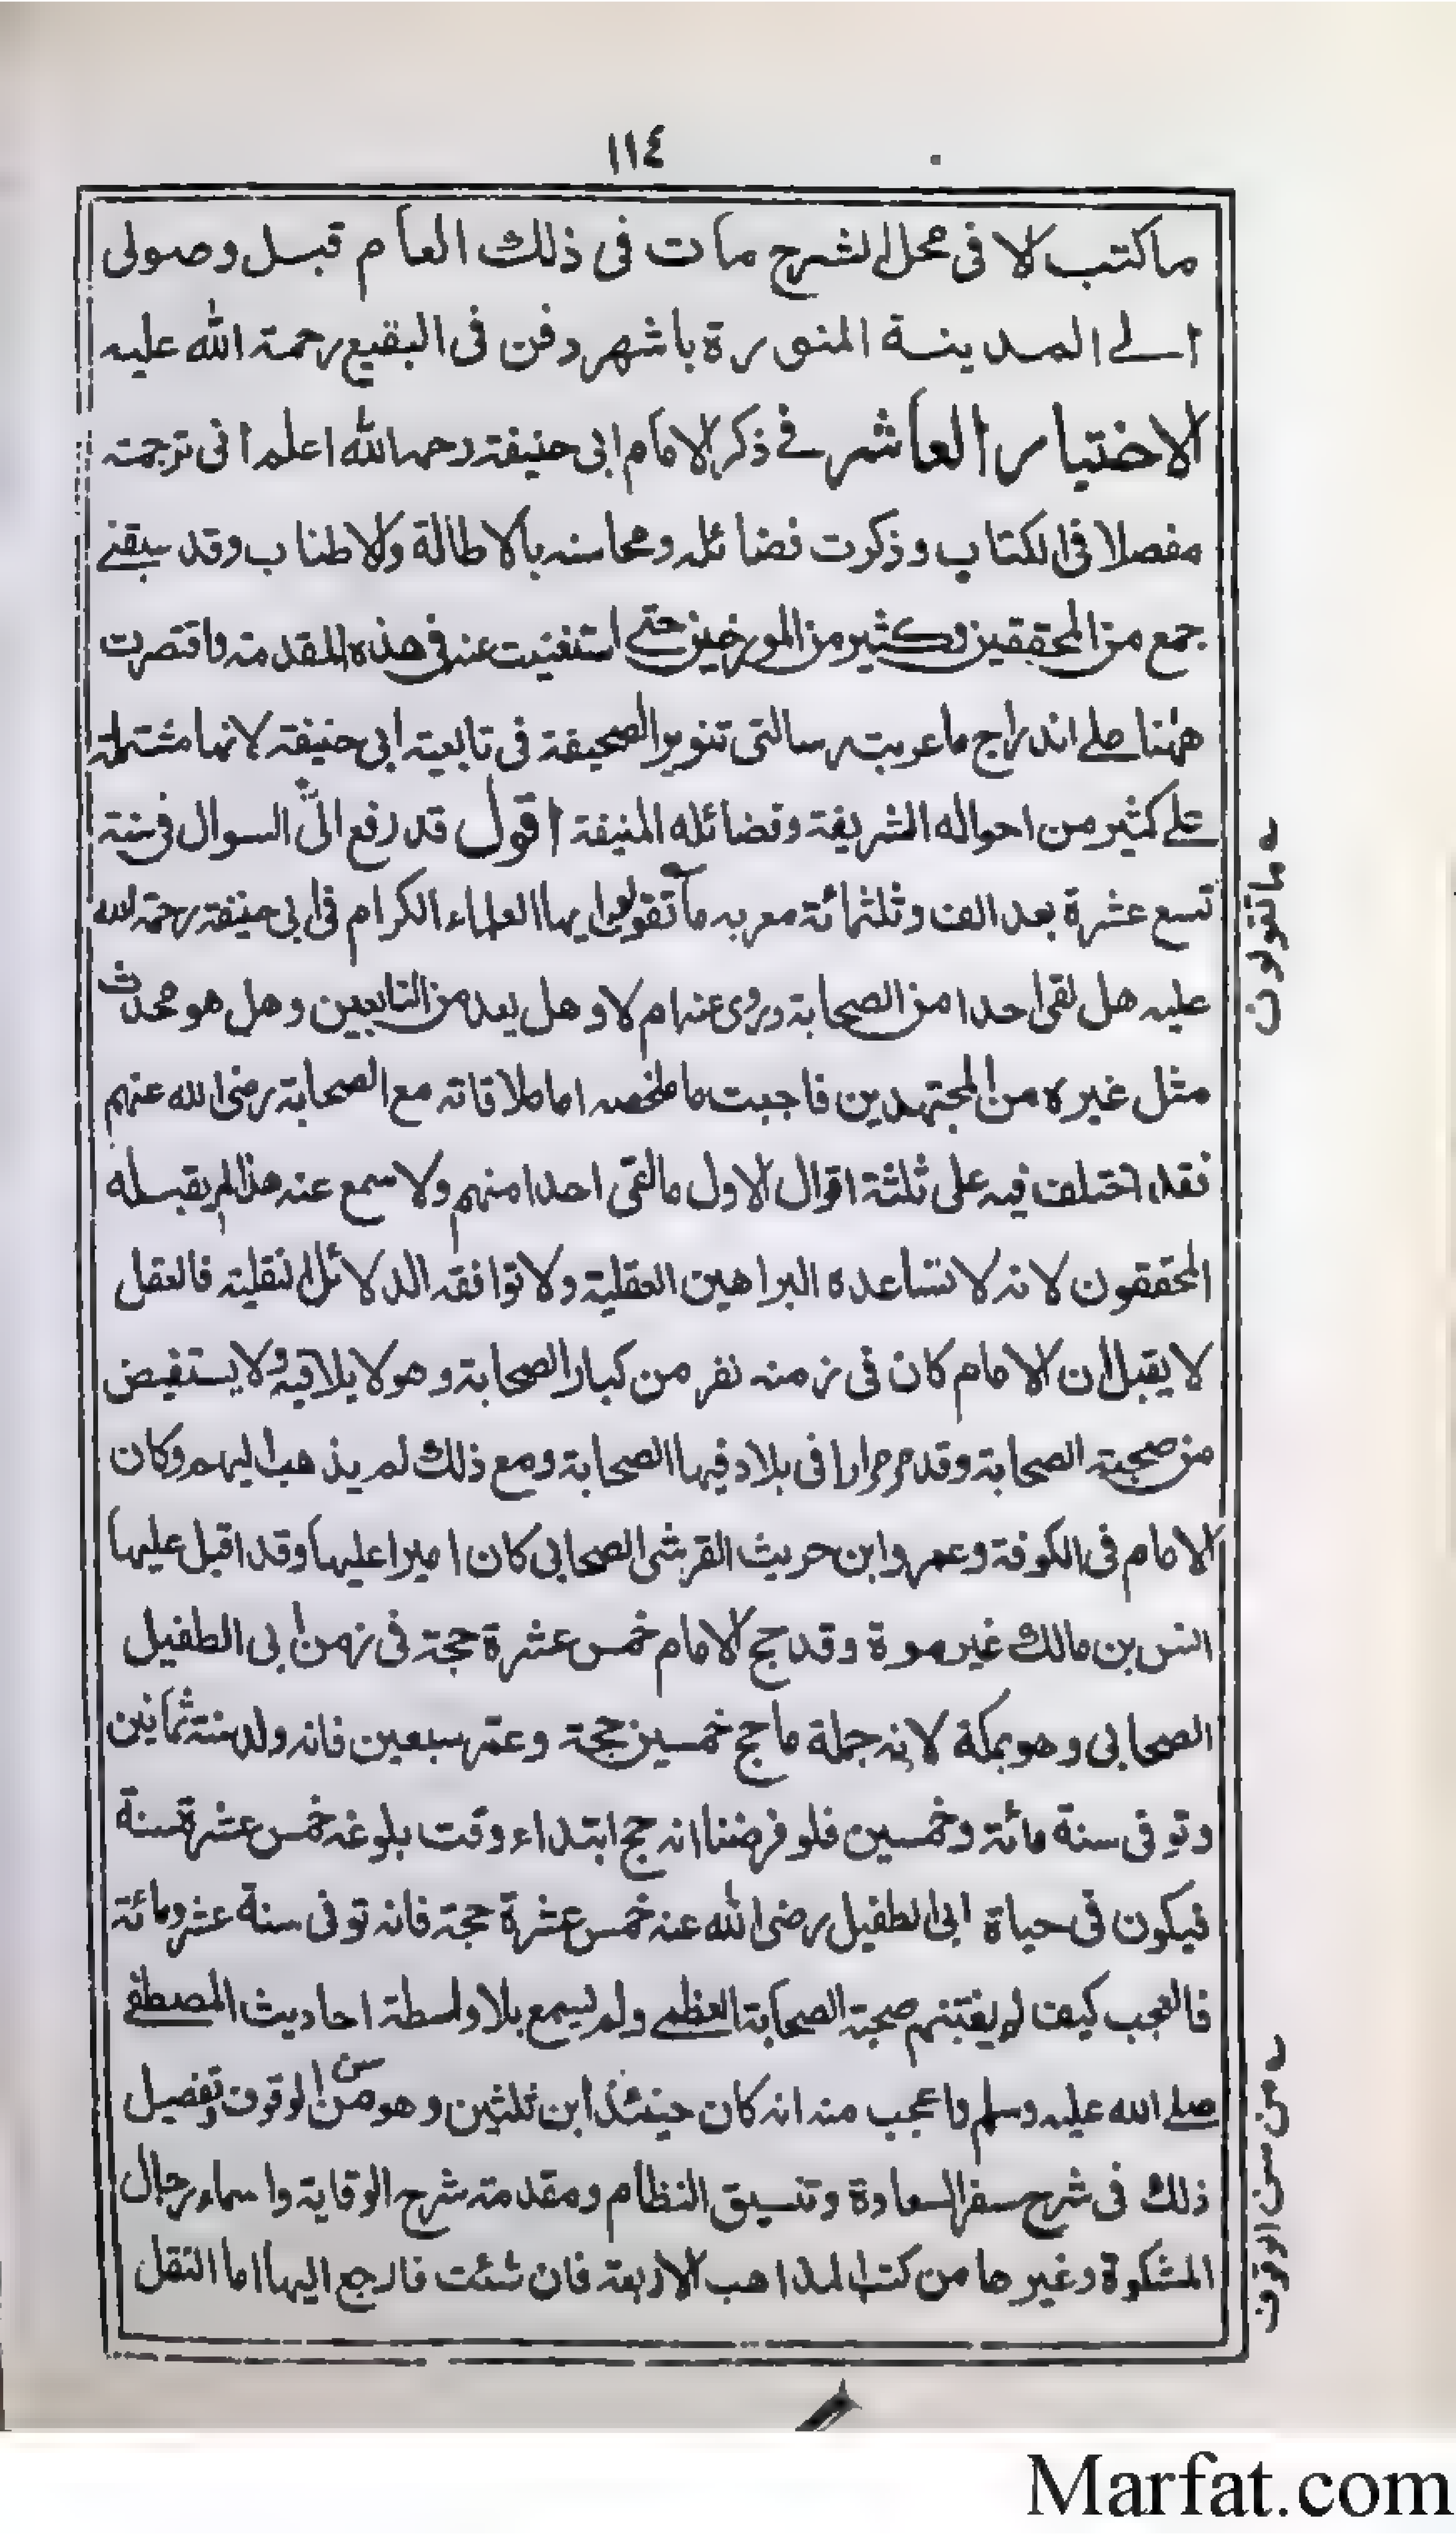 ١١٤
ماكتب الا فى محل الشرح مات فى ذلك العام قبل وصولى
الے المدينة المنورة باشهر دفن فى البقيع رحمة الله عليه
الاختيار العاشر فے ذكر الامام ابى حنيفة رحمه الله اعلم انى ترجمته
مفصلا فى الكتاب وذكرت فضائله ومحاسنه بالاطالة والاطناب وقد سبقنے
جمع من المحققين وكثير من المورخين حتے استغنيت عنه فى هذه المقدمة واقتصرت
ههنا علے اندراج ما عربت رسالتى تنوير الصحيفة فى تابعية ابى حنيفة لانها مشتملة
علے كثير من احواله الشريفة وفضائله المنيفة اقول قد رفع الىّ السوال فى سنة
تسع عشرة بعد الف وثلثمائة معربه ما تقولوا ايها العلماء الكرام فى ابى حنيفة رحمة الله
عليه هل لقى احدا من الصحابة وروى عنه ام لا وهل يعد من التابعين وهل هو محدث
مثل غيره من المجتهدين فاجبت ما ملخصه اما ملاقاته مع الصحابة رضى الله عنهم
فقد اختلف فيه على ثلثة اقوال الاول ما لقى احدا منهم ولا سمع عنه هذا لم يقبله
المحققون لانه لا تساعده البراهين العقلية ولا توافقه الدلائل النقلية فالعقل
لا يقبل ان الامام كان فى زمنه نفر من كبار الصحابة وهو لا يلاقيه ولا يستفيض
من صحبة الصحابة وقد مر مرارا فى بلاد فيها الصحابة ومع ذلك لم يذهب اليهم وكان
الامام فى الكوفة وعمرو ابن حريث القرشى الصحابى كان اميرا عليها وقد اقبل عليها
انس بن مالك غير مرة وقد حج الامام خمس عشرة حجة فى زمن ابى الطفيل
الصحابى وهو بمكة لانه جملة ما حج خمسين حجة وعمّر سبعين فانه ولد سنة ثمانين
وتوفى سنة مائة وخمسين فلو فرضنا انه حج ابتداء وقت بلوغه خمس عشرة سنة
فيكون فى حياة ابى الطفيل رضى الله عنه خمس عشرة حجة فانه توفى سنة عشر ومائة
فالعجب كيف لم يغتنم صحبة الصحابة العظمے ولم يسمع بلا واسطة احاديث المصطفے
صلے الله عليه وسلم واعجب منه انه كان حينئذ ابن ثلثين وهو من سن الوقوف وتفصيل
ذلك فى شرح سفر السعادة وتنسيق النظام ومقدمة شرح الوقاية واسماء رجال
المشكوة وغيرها من كتب المذاهب الاربعة فان شئت فارجع اليها اما النقل
ما تقولون
من سن الوقوف
Marfat.com